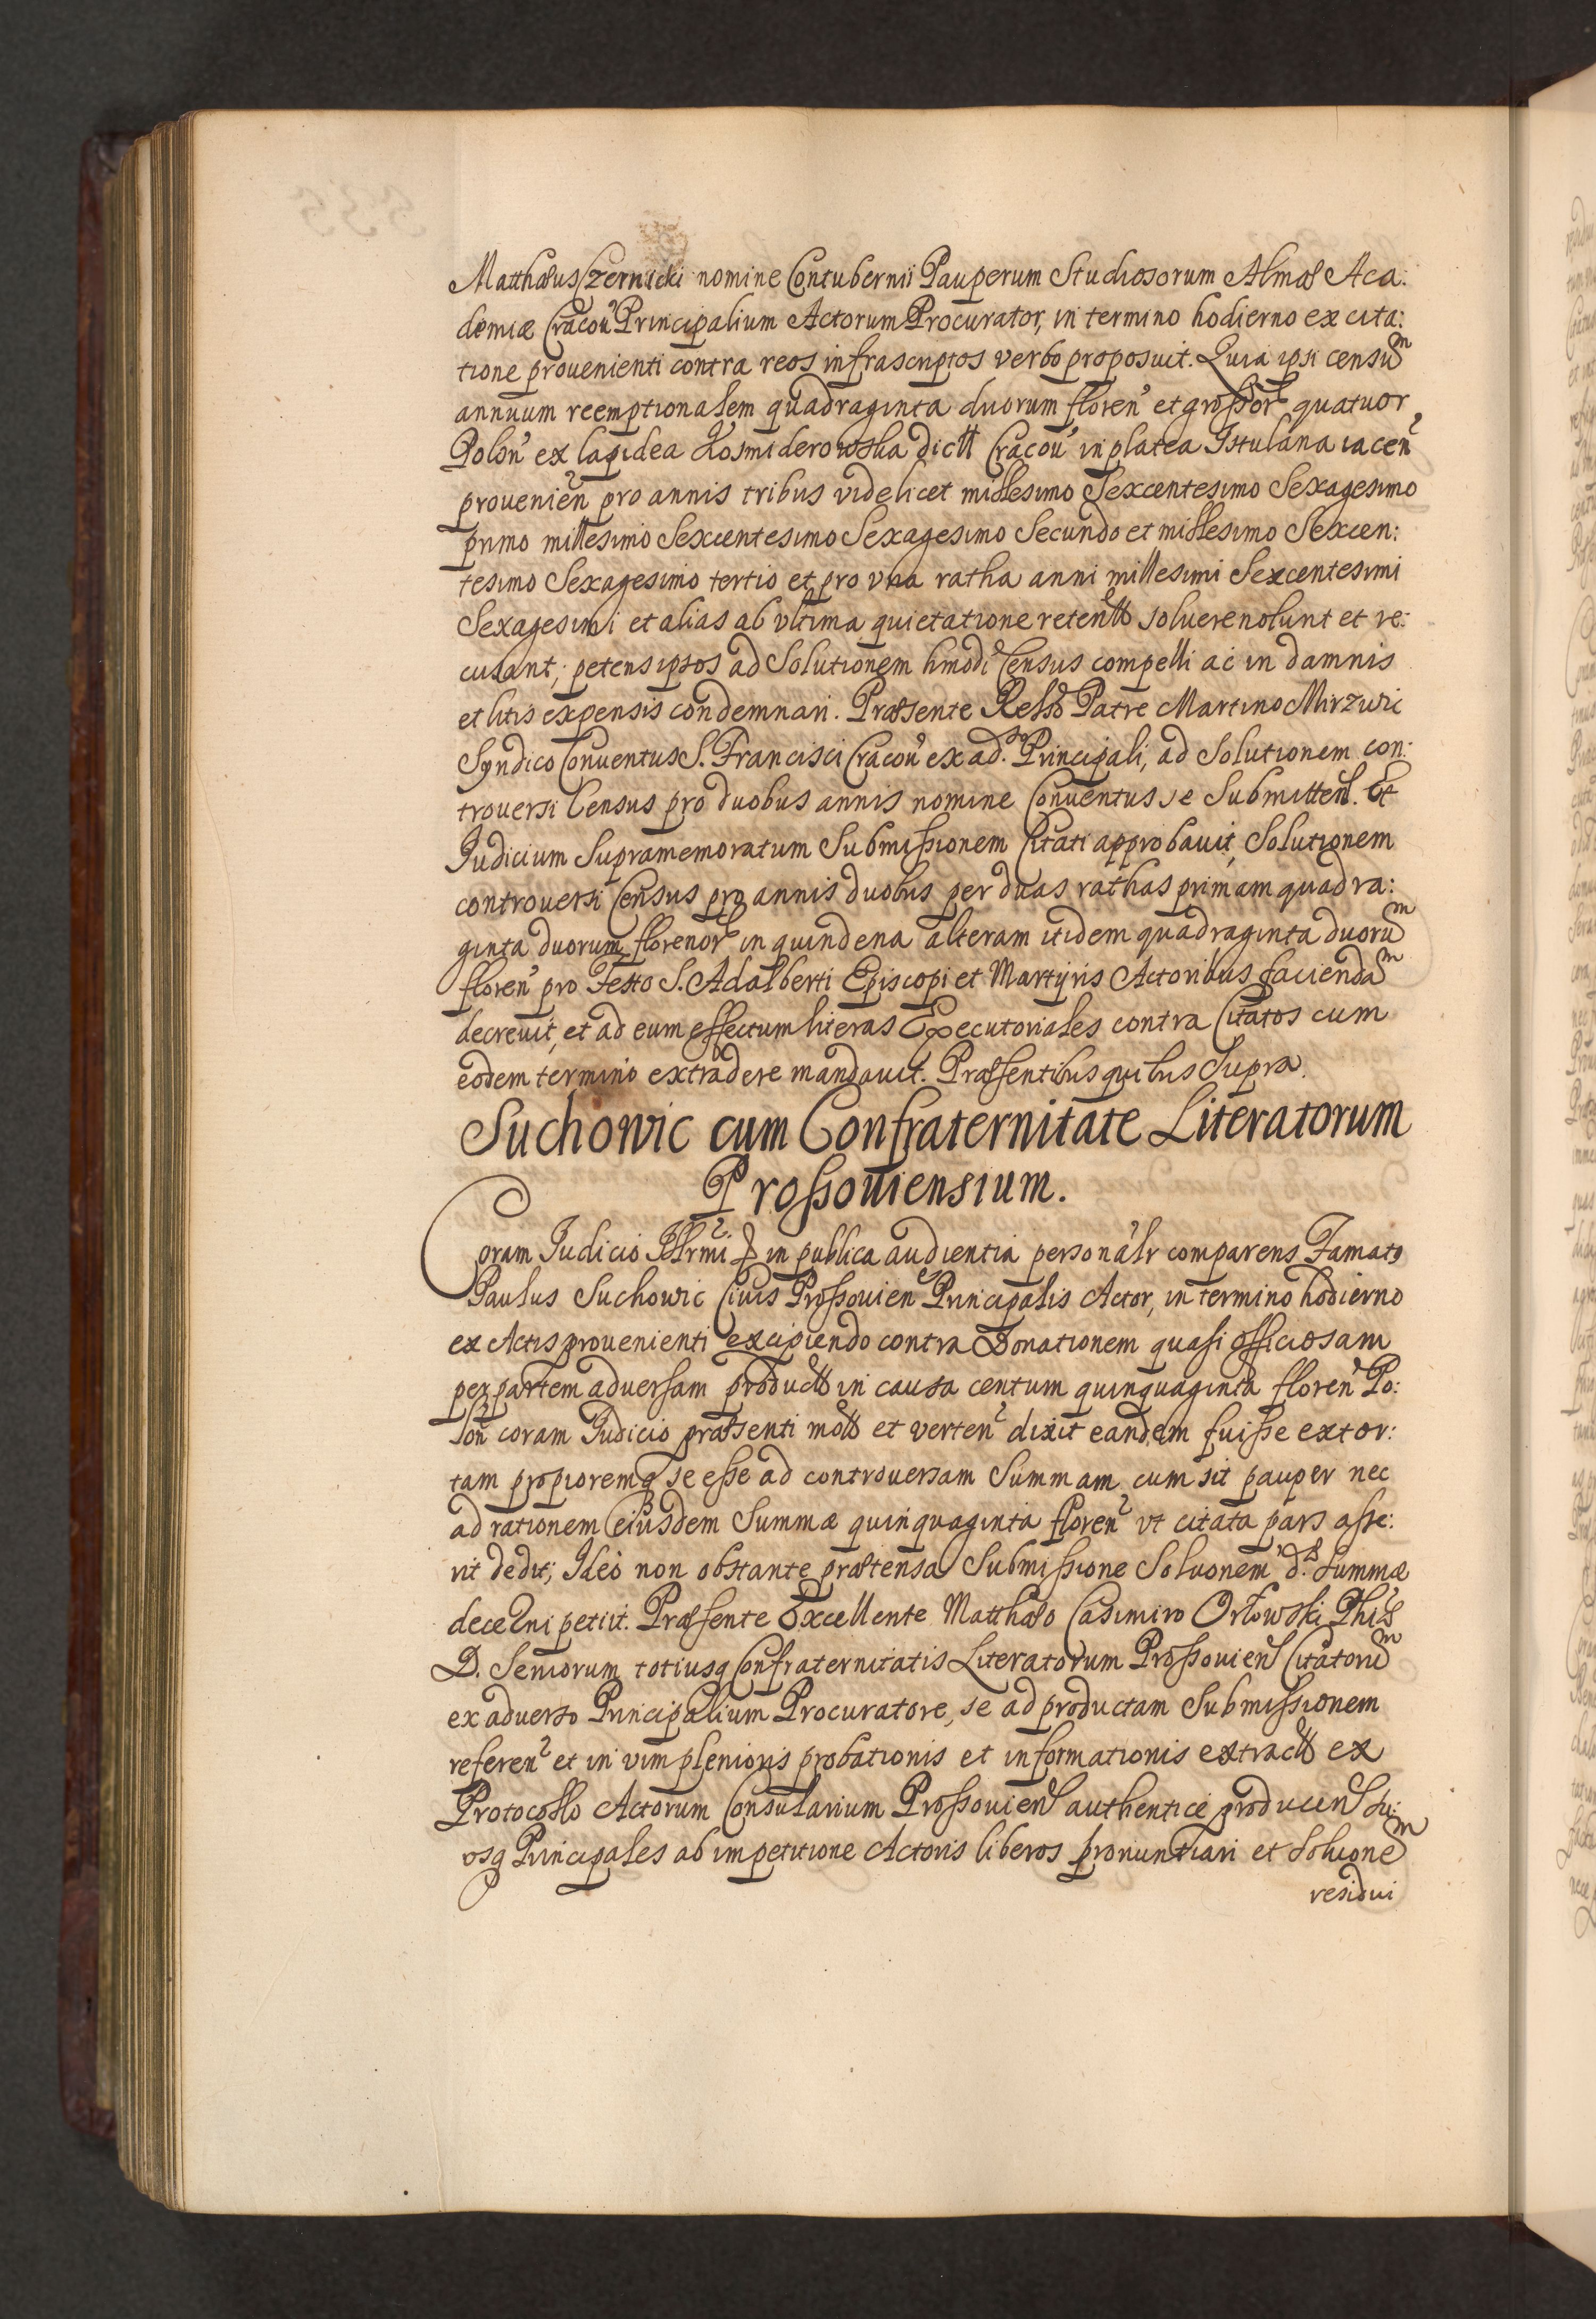 Matthæus Czernicki nomine Contubernii Pauperum Studiosorum Almæ Aca:
demiæ Cracou Principalium Actorum Procurator, in termino hodierno ex cita:
tione prouenienti contra reos infrascriptos verbo proposuit. Quia ipsi censum
annuum reemptionalem quadraginta duorum floren et grossor quatuor
Polon ex lapidea Kosmiderowska dict Cracou in platea Istulana iacen
prouenien pro annis tribus videlicet millesimo Sexcentesimo Sexagesimo
primo millesimo Sexcentesimo Sexagesimo Secundo et millesimo Sexcen:
tesimo Sexagesimo tertio et pro vna ratha anni millesimi Sexcentesimi
Sexagesimi et alias ab vltima quietatione retent soluere nolunt et re:
cusant; petens ipsos ad Solutionem hmodi Census compelli ac in damnis
et litis expensis condemnari. Præsente Rełło Patre Martino Mirzwic
Syndico Conuentus S. Francisci Cracou ex ad.so Principali, ad Solutionem con:
trouersi Census pro duobus annis nomine Conuentus se Submitten. Et
Iudicium Supramemoratum Submissionem Citati approbauit, Solutionem
controuersi Census pro annis duobus per duas rathas primam quadra:
ginta duorum florenor in quindena alteram itidem quadraginta duorum
floren pro Festo S. Adalberti Episcopi et Martyris Actoribus faciendam
decreuit, et ad eum effectum literas Executoriales contra Citatos cum
eodem termino extradere mandauit. Præsentibus quibus Supra.
Suchowic cum Confraternitate Literatorum
Prossouiensium.
Coram Iudicio in publica audientia personalr comparens Famats
Paulus Suchowic Ciuis Prossouien Principalis Actor, in termino hodierno
ex Actis prouenienti excipiendo contra Donationem quasi officiosam
per partem aduersam product in causa centum quinquaginta floren Po:
lon coram Iudicio præsenti mot et verten dixit eandem fuisse extor:
tam propioremq se esse ad controuersam Summam cum sit pauper nec
ad rationem eiusdem Summæ quinquaginta floren vt citata pars asse:
rit dedit; Ideo non obstante prætensa Submissione Soluonem d. Summæ
decerni petiit. Præsente Excellente Matthæo Casimiro Orłowski Phiæ
D. Seniorum totiusq Confraternitatis Literatorum Prossouien Citatorum
ex aduerso Principalium Procuratore, se ad productam Submissionem
referen et in vim plenioris probationis et informationis extract ex
Protocollo Actorum Consularium Prossouien authentice producen Su:
osq Principales ab impetitione Actoris liberos pronuntiari et Soluonem
residui